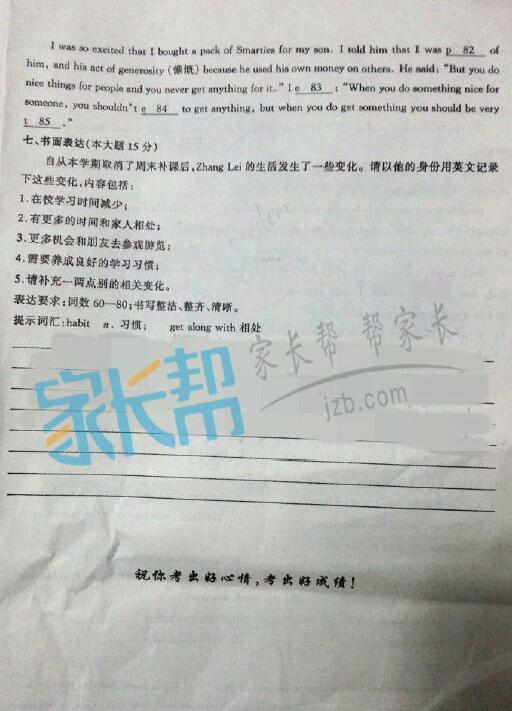 I was so excited that I bought a pack of Smarties for my son. I told him that I was p 82 of
him, and his act of generosity (慷慨) because he used his own money on others. He said: "But you do
nice things for people and you never get anything for it." I e 83 : "When you do something nice for
someone, you shouldn't e 84 to get anything, but when you do get something you should be very
t 85 ."
七、书面表达(本大题 15 分)
自从本学期取消了周末补课后,Zhang Lei 的生活发生了一些变化。请以他的身份用英文记录
下这些变化,内容包括:
1.在校学习时间减少;
2.有更多的时间和家人相处;
3.更多机会和朋友去参观游览;
4.需要养成良好的学习习惯;
5.请补充一两点别的相关变化。
表达要求:词数 60—80;书写整洁、整齐、清晰。
提示词汇:habit n. 习惯; get along with 相处
家长帮 帮家长
jzb.com
家长帮
祝你考出好心情,考出好成绩!